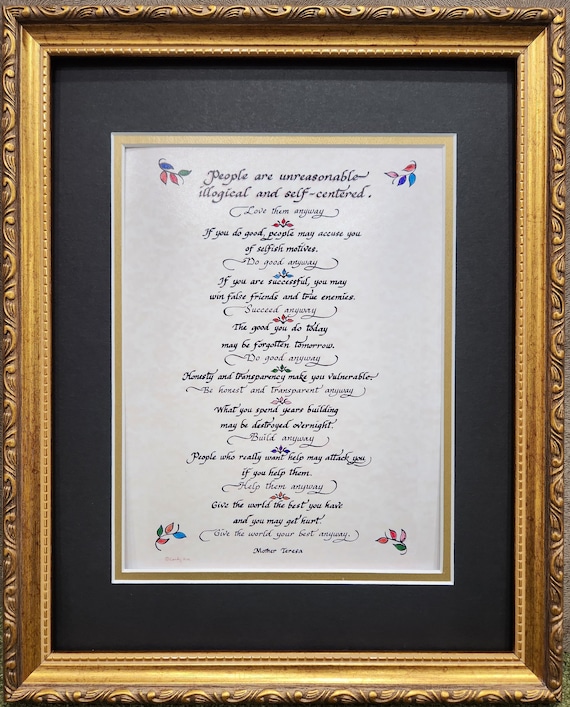 People are unreasonable
illogical and self-centered.
Love them anyway
If you do good, people may accuse you
of selfish motives.
Do good anyway
If you are successful, you may
win false friends and true enemies.
Succeed anyway
The good you do today
may be forgotten tomorrow.
Do good anyway
Honesty and transparency make you vulnerable.
Be honest and transparent anyway
What you spend years building
may be destroyed overnight.
Build anyway
People who really want help may attack you
if you help them.
Help them anyway
Give the world the best you have
and you may get hurt.
Give the world your best anyway.
Mother Teresa